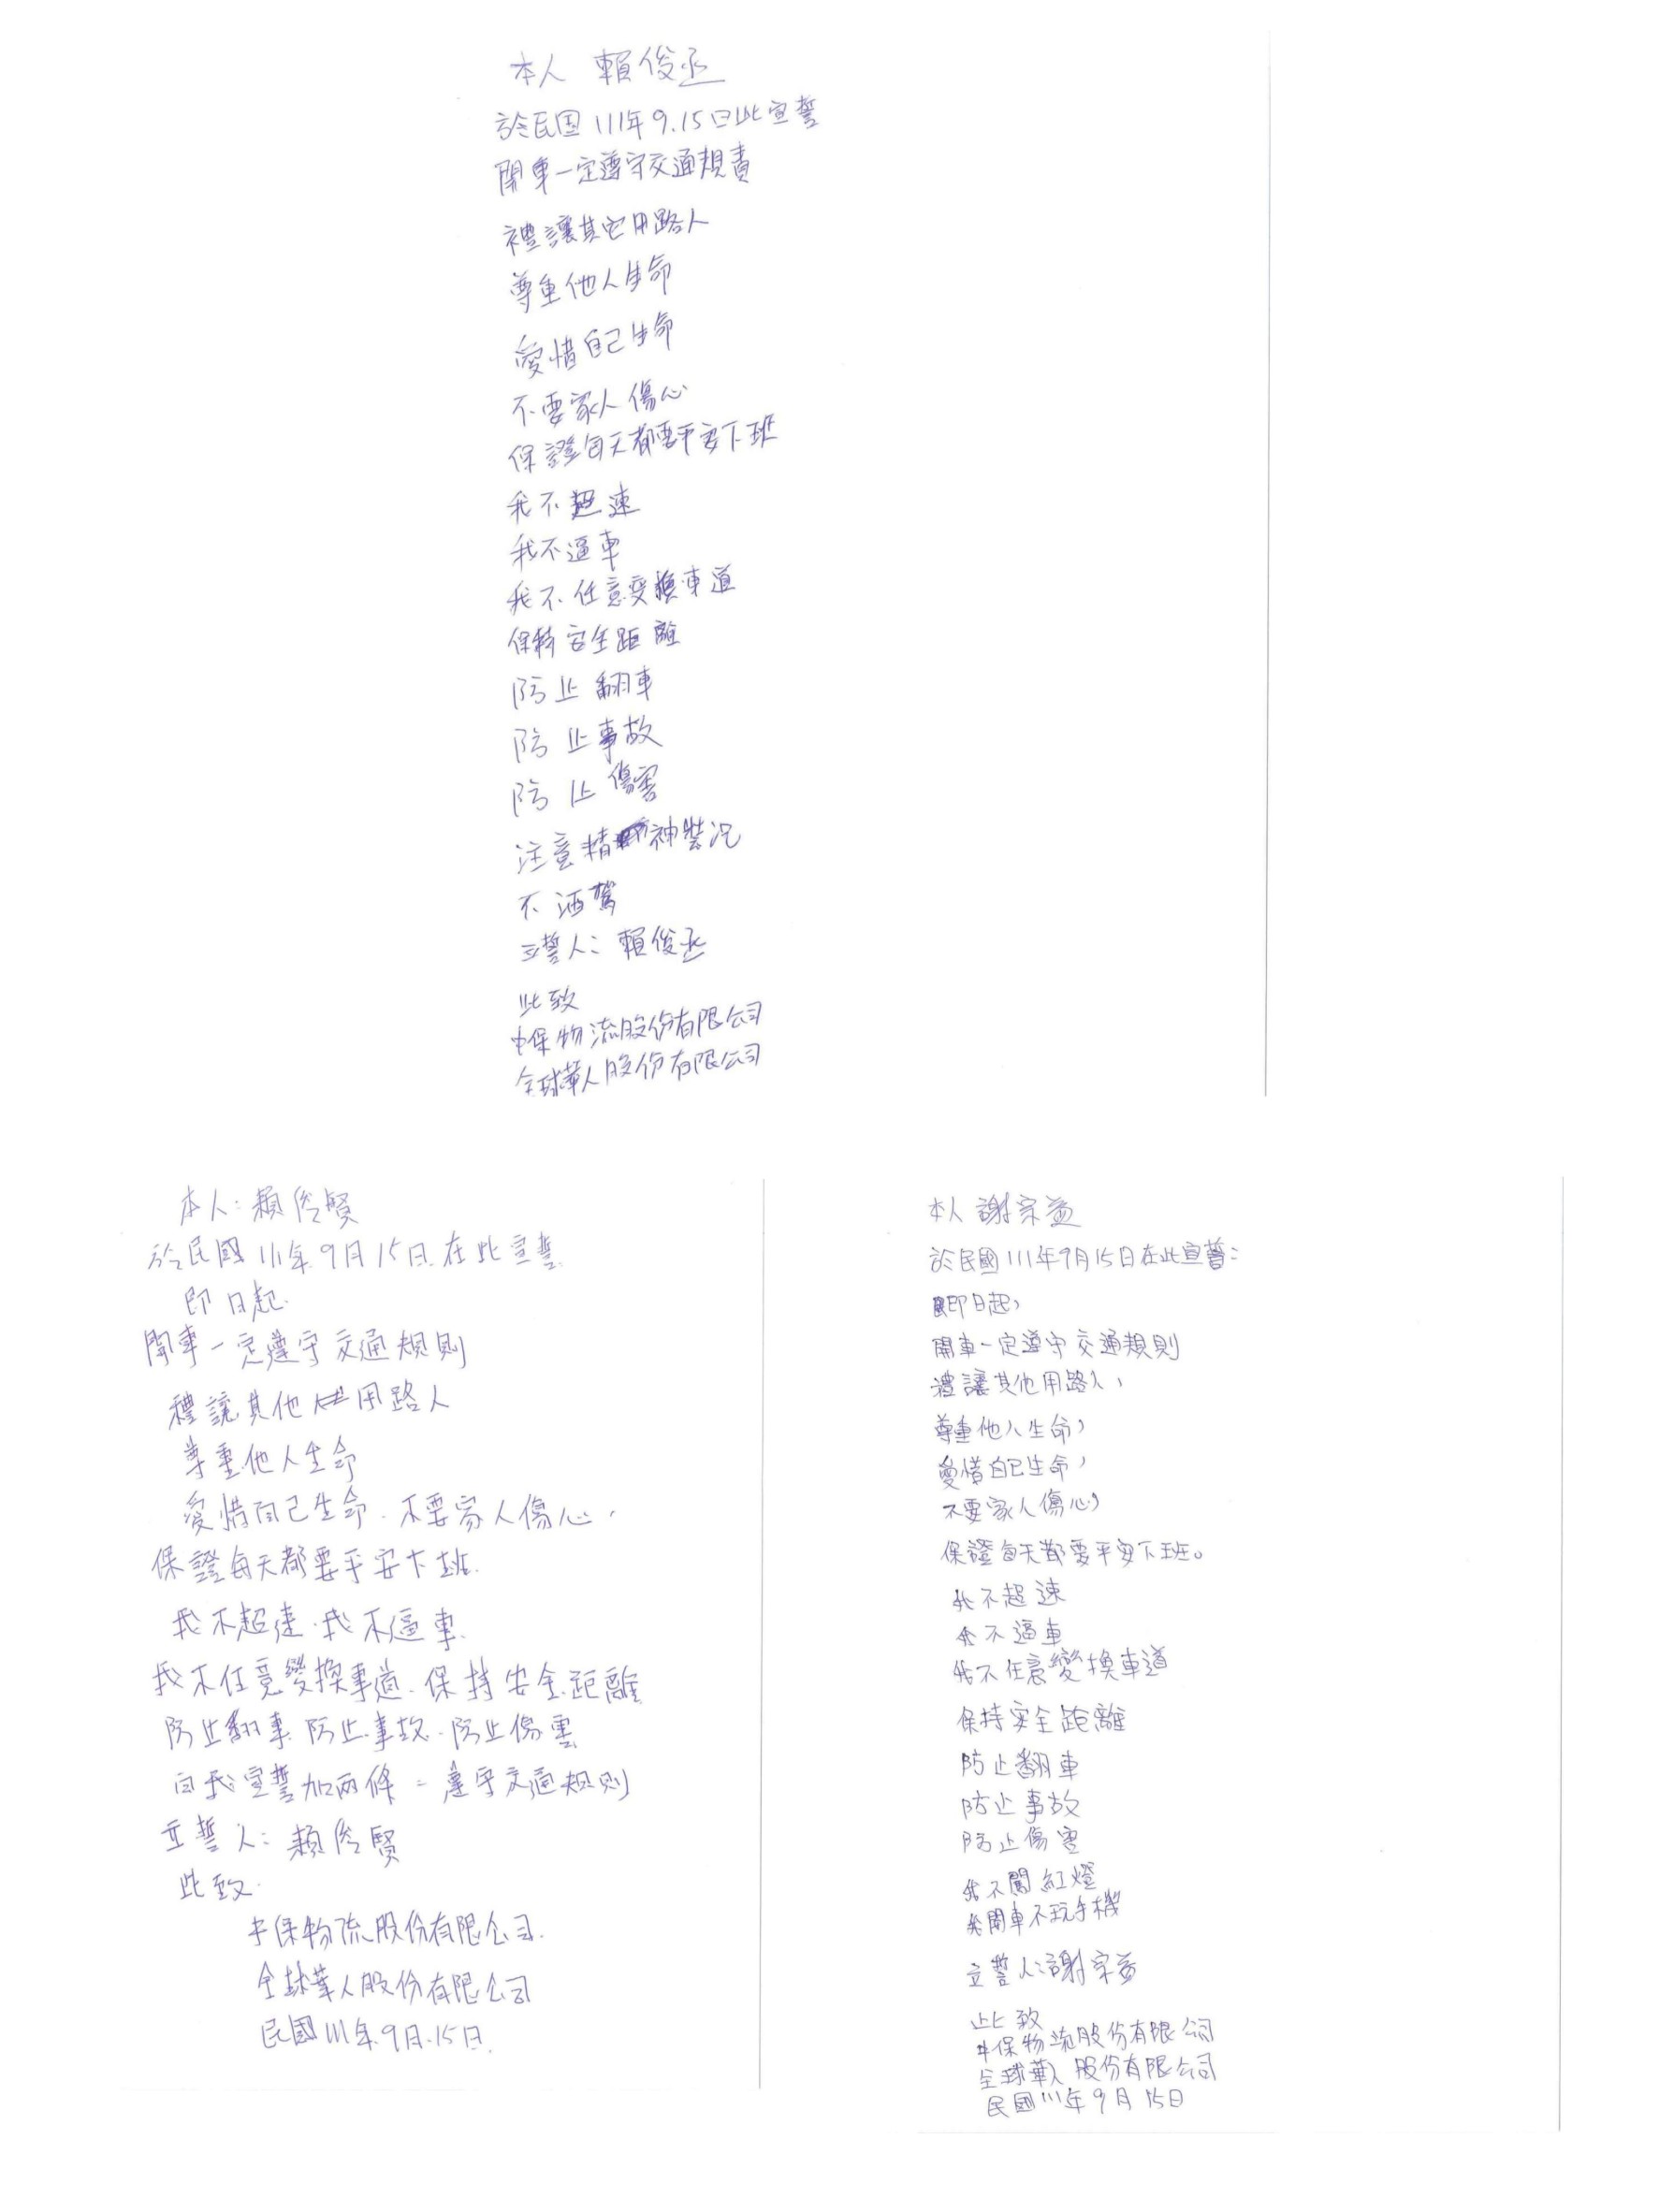 本人 賴俊丞
於民国111年9.15日此宣誓
開車一定遵守交通規責
禮讓其它用路人
尊重他人生命
愛惜自己生命
不要家人傷心
保證每天都要平安下班
我不超速
我不逼車
我不任意变換車道
保持安全距離
防止翻車
防止事故
防止傷害
注意精神裝況
不酒駕
立誓人:賴俊丞
此致
中保物流股份有限公司
全球華人股份有限公司
本人:賴俊賢
於民國111年9月15日在此宣誓
即日起.
開車一定遵守交通規則
禮讓其他用路人
尊重他人生命
愛惜自己生命.不要家人傷心.
保證每天都要平安下班.
我不超速.我不逼車.
我不任意變換車道.保持安全距離
防止翻車.防止事故.防止傷害
自我宣誓加兩條=遵守交通規则
立誓人:賴俊賢
此致.
中保物流股份有限公司.
全球華人股份有限公司
民國111年9月.15日.
本人 謝宗益
於民國111年9月15日在此宣誓:
即日起,
開車一定遵守交通規則
禮讓其他用路人,
尊重他人生命,
愛惜自己生命,
不要家人傷心,
保證每天都要平安下班。
我不超速
我不逼車
我不任意變換車道
保持安全距離
防止翻車
防止事故
防止傷害
我不闖紅燈
我開車不玩手機
立誓人:謝宗益
此致
中保物流股份有限公司
全球華人股份有限公司
民國111年9月15日